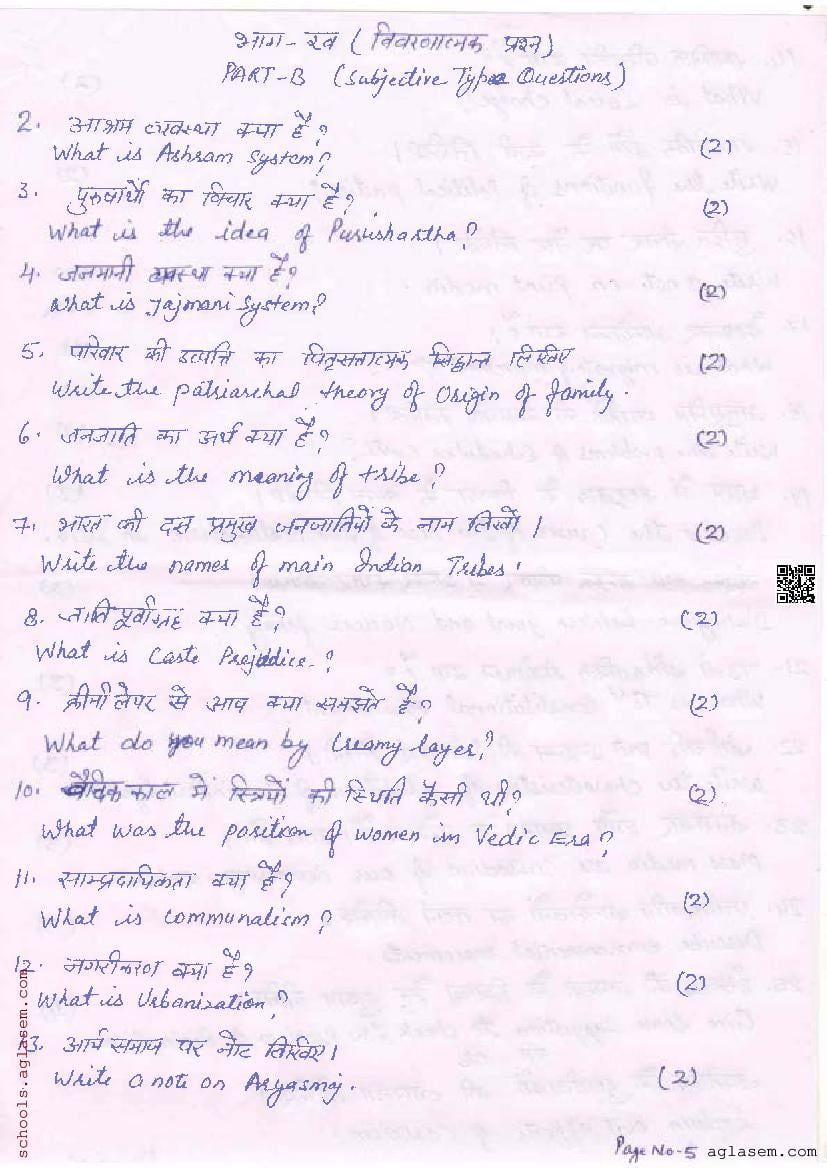 भाग-ख (विवरणात्मक प्रश्न)
PART-B (Subjective Type Questions)
2. आश्रम व्यवस्था क्या है?
What is Ashram System? (2)
3. पुरुषार्थो का विचार क्या है?
What is the idea of Purushartha? (2)
4. जजमानी व्यवस्था क्या है?
What is Jajmani System? (2)
5. परिवार की उत्पत्ति का पितृसत्तात्मक सिद्धान्त लिखिए (2)
Write the patriarchal theory of Origin of family.
6. जनजाति का अर्थ क्या है? (2)
What is the meaning of tribe?
7. भारत की दस प्रमुख जनजातियों के नाम लिखो। (2)
Write the names of main Indian Tribes.
8. जाति पूर्वाग्रह क्या है? (2)
What is Caste Prejudice.?
9. क्रीमी लेयर से आप क्या समझते है? (2)
What do you mean by Creamy layer?
10. वैदिक काल में स्त्रियों की स्थिति कैसी थी? (2)
What was the position of women in Vedic Era?
11. साम्प्रदायिकता क्या है? (2)
What is communalism?
12. नगरीकरण क्या है? (2)
What is Urbanization?
13. आर्य समाज पर नोट लिखिए।
Write a note on Aryasmaj. (2)
Page No-5
aglasem.com
schools.aglasem.com